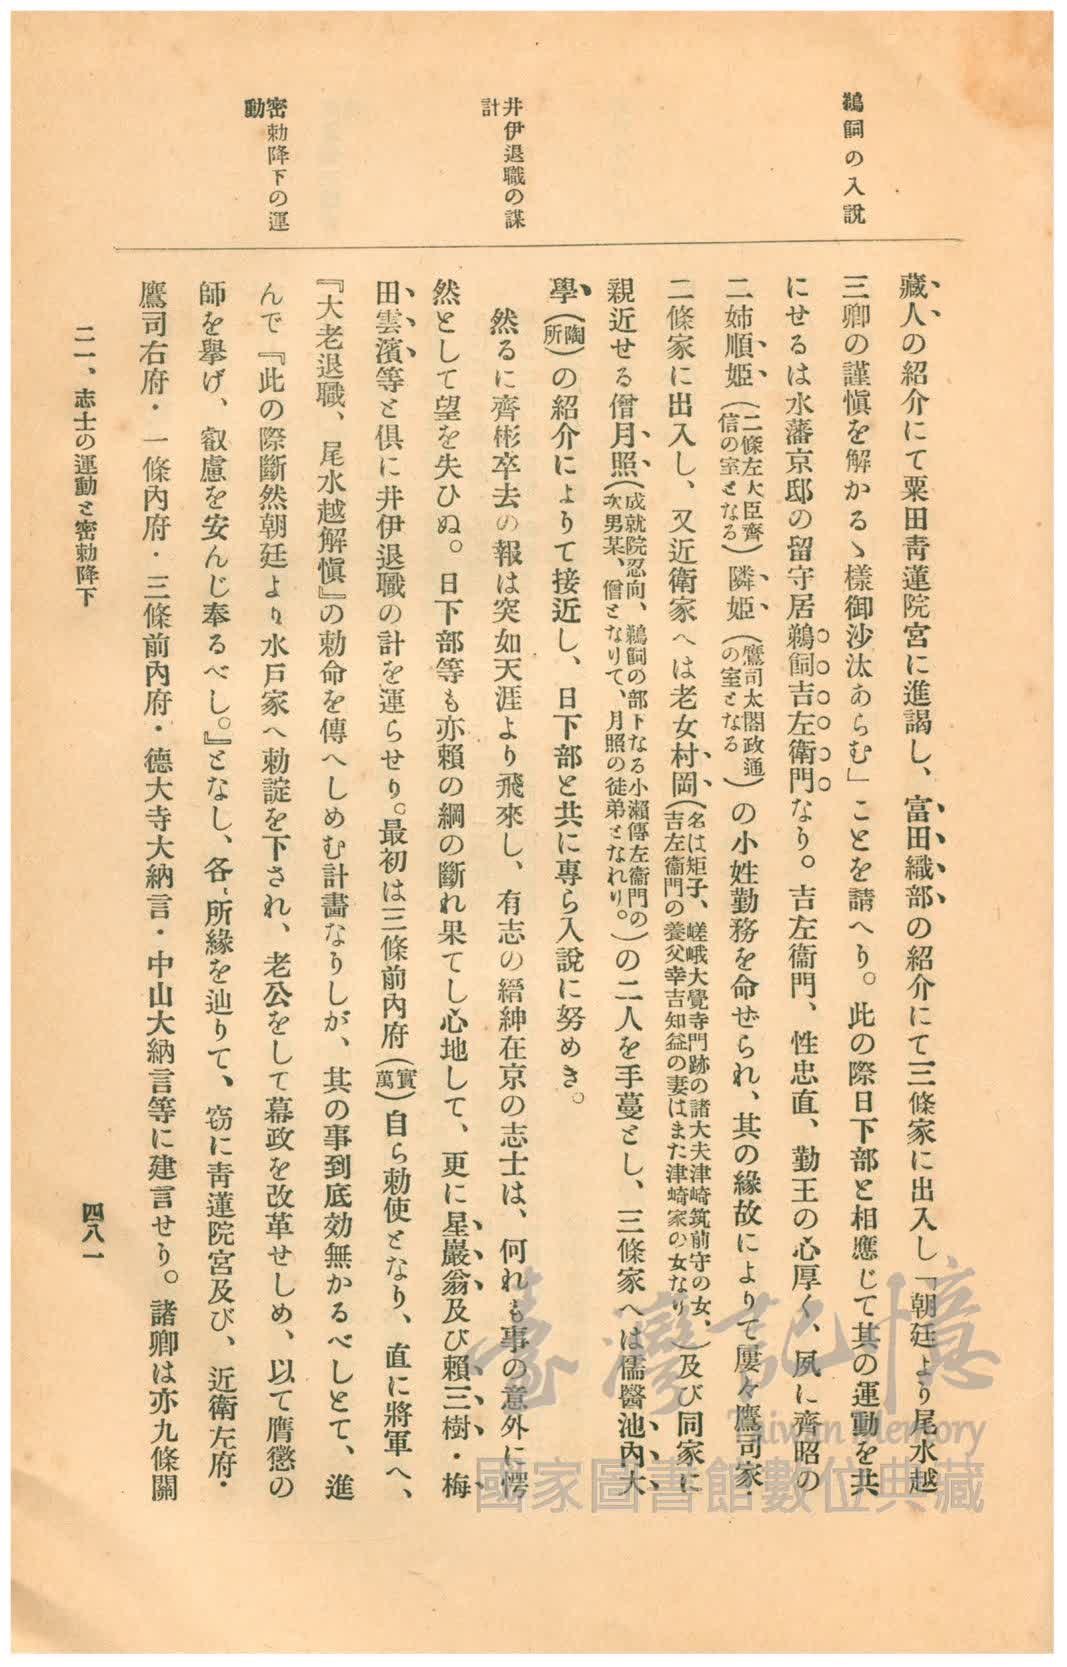 鵜飼の入說
井伊退職の謀
計
密勅降下の運
動
藏人の紹介にて粟田靑蓮院宮に進謁し、富田織部の紹介にて三條家に出入し「朝廷より尾水越
三卿の謹愼を解かるゝ樣御沙汰あらむ」ことを請へり。此の際日下部と相應じて其の運動を共
にせるは水藩京邸の留守居鵜飼吉左衞門なり。吉左衞門、性忠直、勤王の心厚く、夙に齊昭の
二姉順姬（二條左大臣齊信の室となる）隣姬（鷹司太閤政通の室となる）の小姓勤務を命ぜられ、其の緣故によりて屢々鷹司家・
二條家に出入し、又近衞家へは老女村岡（名は矩子、嵯峨大覺寺門跡の諸大夫津崎筑前守の女、吉左衞門の養父幸吉知益の妻はまた津崎家の女なり）及び同家に
親近せる僧月照（成就院忍向、鵜飼の部下なる小瀨傳左衞門の次男某、僧となりて、月照の徒弟となれり。）の二人を手蔓とし、三條家へは儒醫池內大
學（陶所）の紹介によりて接近し、日下部と共に專ら入說に努めき。
然るに齊彬卒去の報は突如天涯より飛來し、有志の縉紳在京の志士は、何れも事の意外に愕
然として望を失ひぬ。日下部等も亦賴の綱の斷れ果てし心地して、更に星巖翁及び賴三樹・梅
田雲濱等と俱に井伊退職の計を運らせり。最初は三條前內府（實萬）自ら勅使となり、直に將軍へ、
『大老退職、尾水越解愼』の勅命を傳へしめむ計畫なりしが、其の事到底効無かるべしとて、進
んで『此の際斷然朝廷より水戶家へ勅諚を下され、老公をして幕政を改革せしめ、以て膺懲の
師を擧げ、叡慮を安んじ奉るべし。』となし、各〻所緣を辿りて、窃に靑蓮院宮及び、近衞左府・
鷹司右府・一條內府・三條前內府・德大寺大納言・中山大納言等に建言せり。諸卿は亦九條關
二一、志士の運動と密勅降下
四八一
臺灣記憶
Taiwan Memory
國家圖書館數位典藏